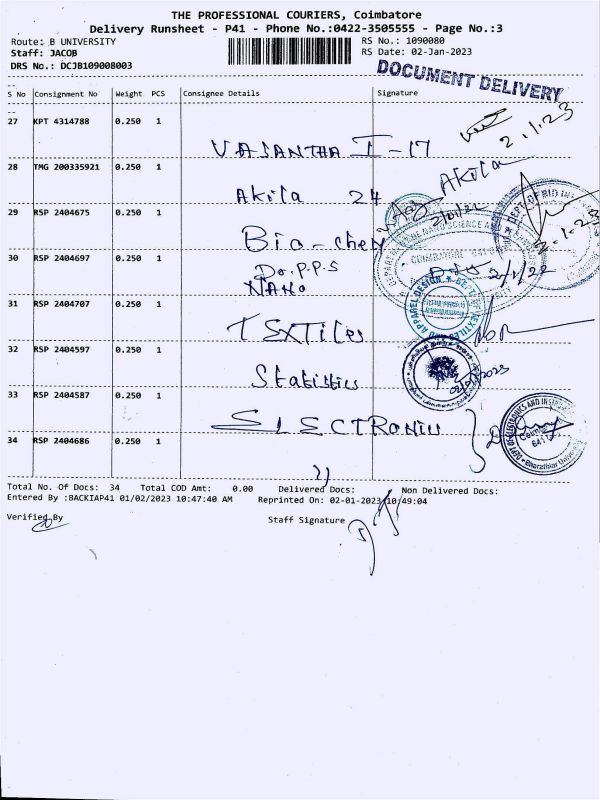 THE PROFESSIONAL COURIERS, Coimbatore
Delivery Runsheet - P41 - Phone No.:0422-3505555 - Page No.:3
Route: B UNIVERSITY RS No.: 1090080
Staff: JACOB RS Date: 02-Jan-2023
DRS No.: DCJB109008003
DOCUMENT DELIVERY
S No Consignment No Weight PCS Consignee Details Signature
27 KPT 4314788 0.250 1
VASANTHA I - 17 2.1.23
28 TMG 200335921 0.250 1
Akila 24 Akila
29 RSP 2404675 0.250 1
Bio-chem
30 RSP 2404697 0.250 1
Dr. P.P.S
NANO
31 RSP 2404707 0.250 1
TEXTiles
32 RSP 2404597 0.250 1
Statistics
33 RSP 2404587 0.250 1
ELECTRONIC
34 RSP 2404686 0.250 1
"
Total No. Of Docs: 34 Total COD Amt: 0.00 Delivered Docs: Non Delivered Docs:
Entered By :BACKIAP41 01/02/2023 10:47:40 AM Reprinted On: 02-01-2023 10:49:04
Verified By Staff Signature